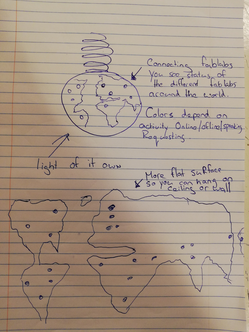 Connecting fablabs
You see status of
the different fablabs
around the world.
Colors depend on
activity Online/offline/speaking
Requesting...
light of it own
More flat surface
so you can hang on
ceiling or wall